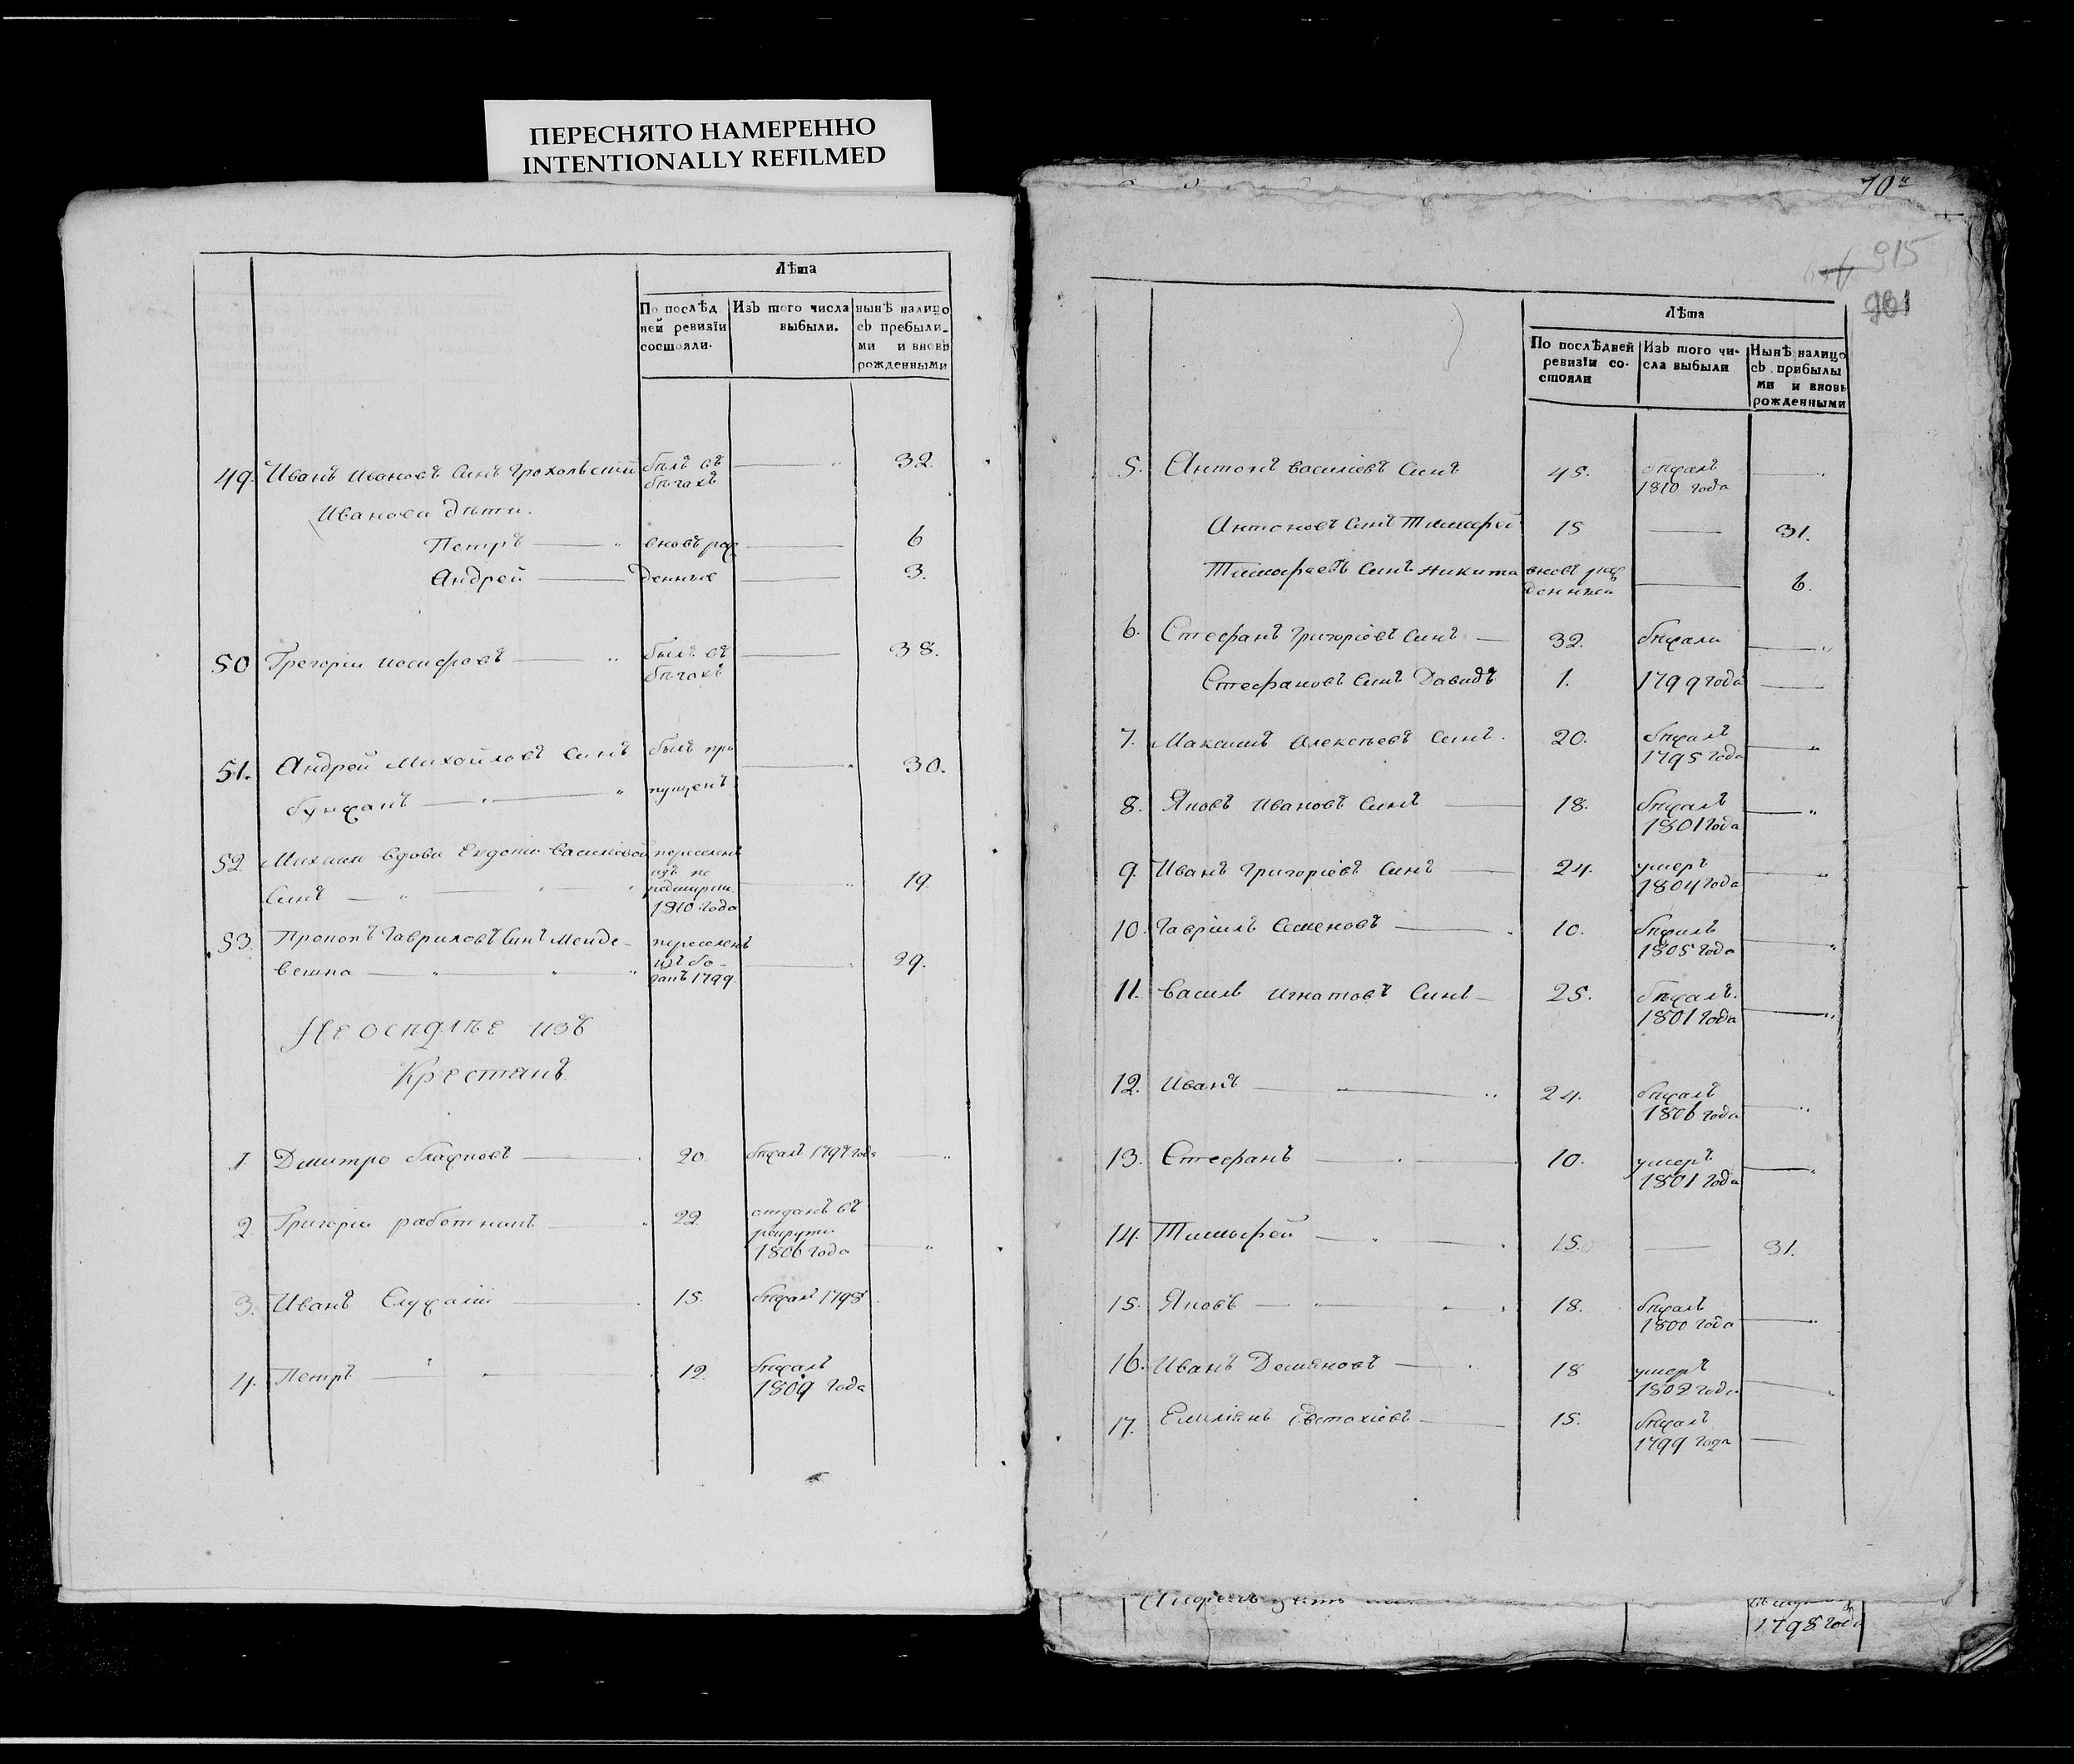 ПЕРЕСНЯТО НАМЕРЕННО
INTENTIONALLY REFILMED
Лѣта
По послѣд
ней ревизїи
состояли.
Изъ того числа
выбыли.
нынѣ налицо
съ пребыли-
ми и вновь
рожденными
49. Иванъ Ивановъ Синъ Грохольстій былъ въ бѣгахъ 32.
Иванови дѣти.
Петръ вновь рож 6
Андрей денние 3.
50 Грегорій Иосифовъ былъ въ бѣгахъ 38.
51. Андрей Михойловъ Синъ былъ про 30.
бунжанъ пущенъ
52 Михаил вдови Евдокіи Василіовой переселенъ
Синъ 1810 года 19.
53. Прокопъ Гавриловъ Синъ Менде- переселенъ
вешка 1799 29.
Неосѣдлые изъ
Крестянъ
1. Дмитро 20. бѣжалъ 1797 года
2. Григорій работникъ 22 отданъ въ рекруты 1806 года
3. Иванъ Служалій 15. бѣжалъ 1798
4. Петръ 12. бѣжалъ 1809 года
70
915
901
Лѣта
По послѣдней
ревизїи со-
стояли
Изъ того чи-
сла выбыли
Нынѣ налицо
съ прибылы
ми и вновь
рожденными
5. Антонъ Василіевъ Синъ 45. бѣжалъ 1810 года
Антоновъ Синъ Тимофей 15 31.
Тимофеевъ Синъ Никита вновь рож денней 6.
6. Стефанъ Григоріевъ Синъ 32. бѣжали
Стефановъ Синъ Давидъ 1. 1799 года
7. Максимъ Алексѣевъ Синъ. 20. бѣжалъ 1795 года
8. Яковъ Ивановъ Синъ 18. бѣжалъ 1801 года
9. Иванъ Григоріевъ Синъ 24. умеръ 1804 года
10. Гавріилъ Семеновъ 10. бѣжалъ 1805 года
11. Василь Игнатовъ Синъ 25. бѣжалъ. 1801 года
12. Иванъ 24. бѣжалъ 1806 года
13. Стефанъ 10. умеръ 1801 года
14. Тимофей 15. 31.
15. Яковъ 18. бѣжалъ 1800 года
16. Иванъ Демяновъ 18 умеръ 1802 года
17. Емиліянъ Евтохіевъ 15. бѣжалъ 1799 года
1798 года